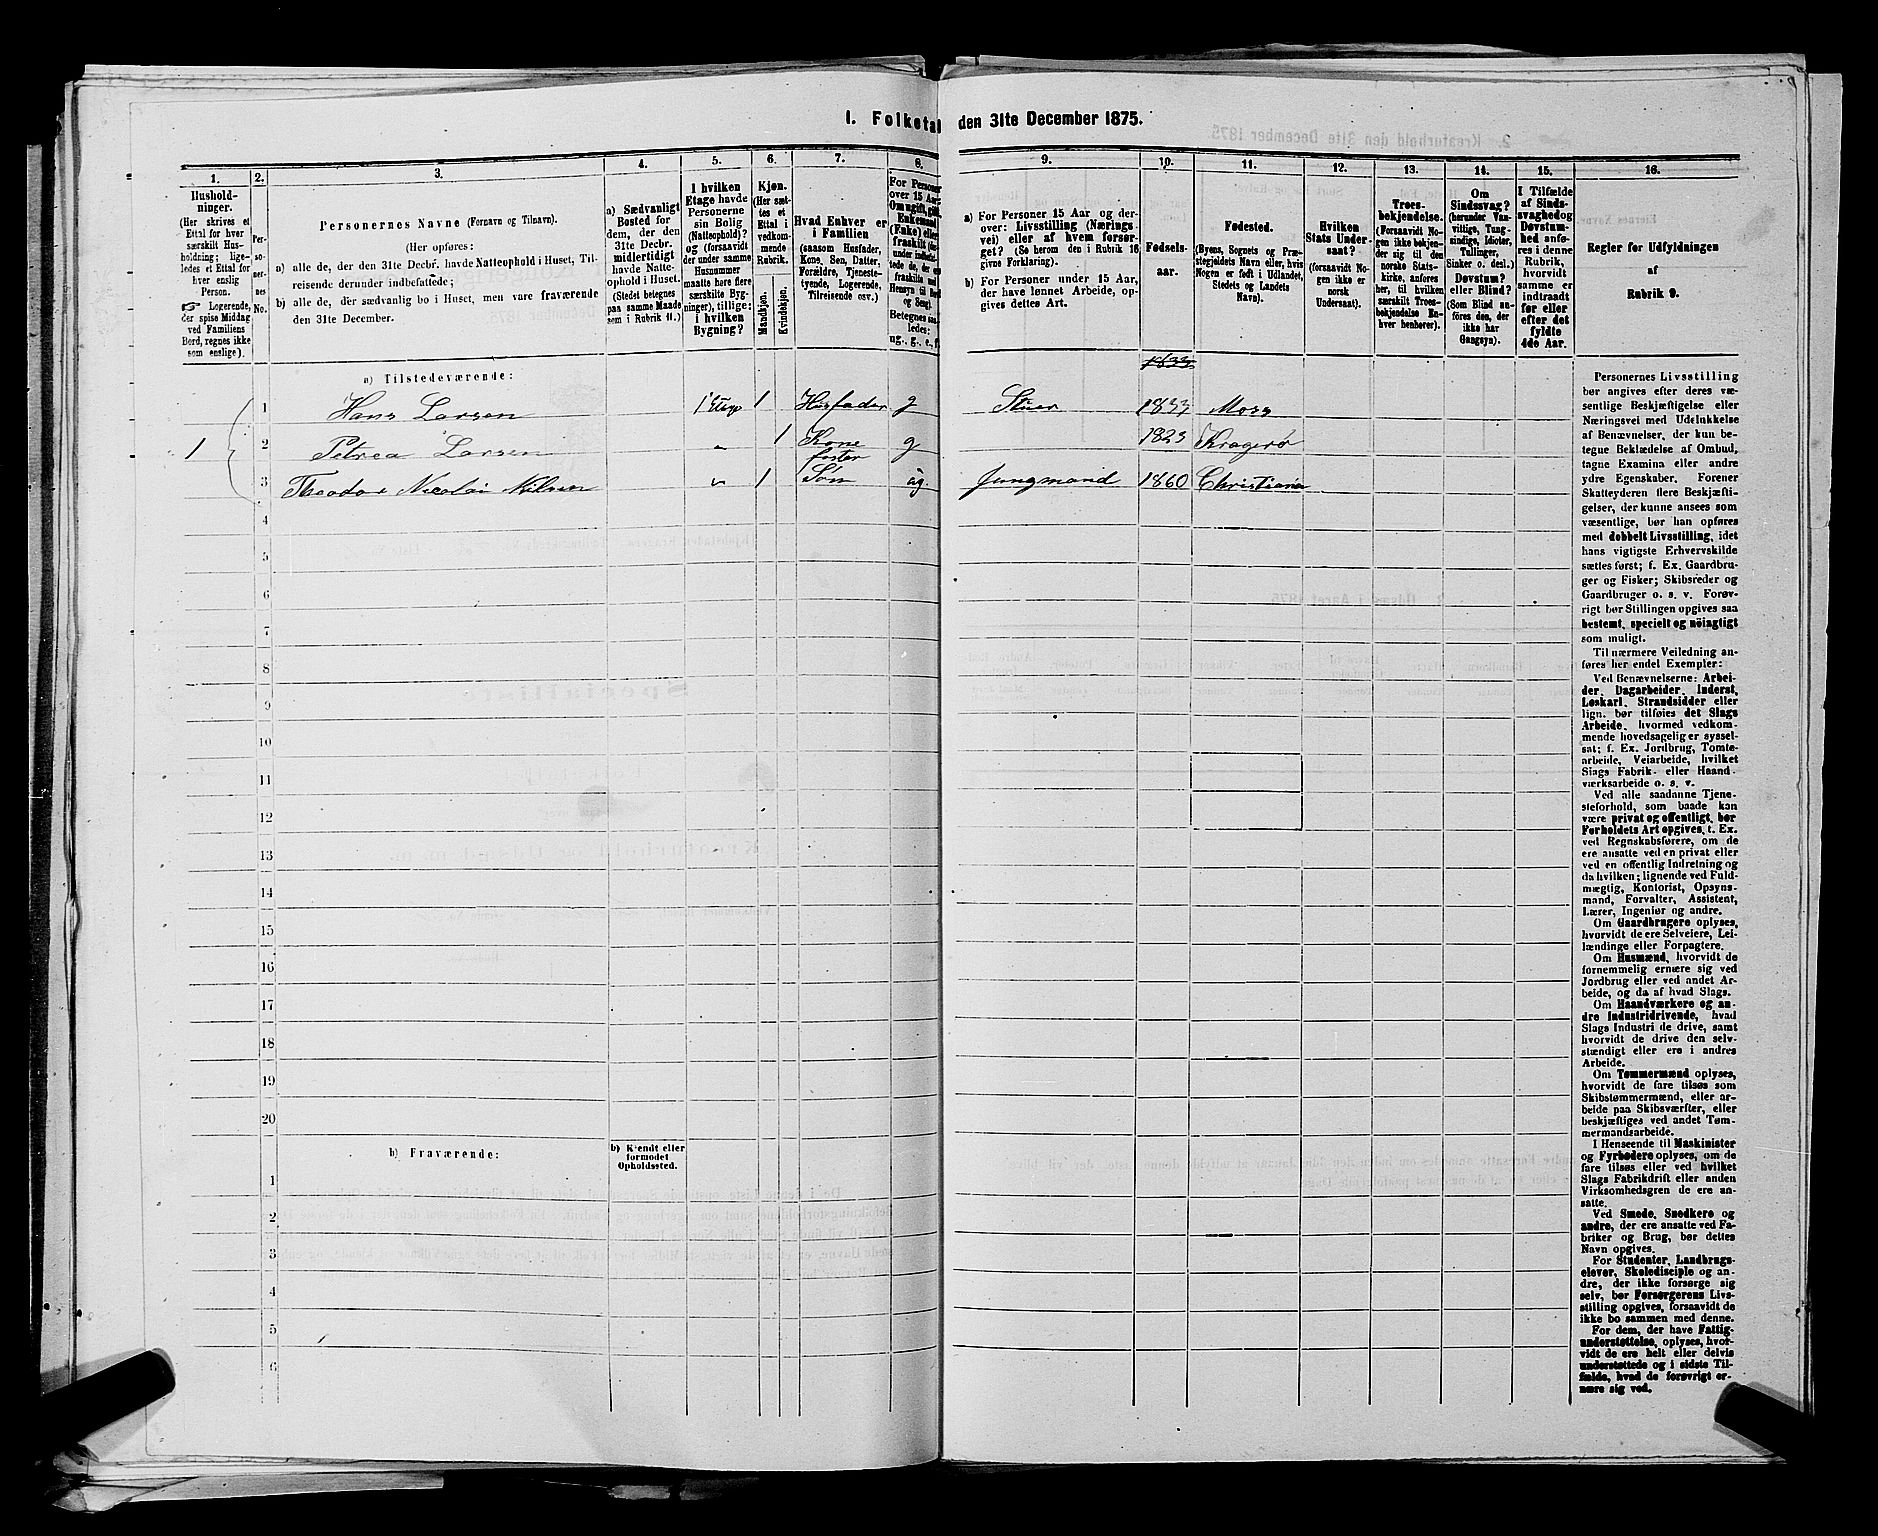 1. Folketal den 31te December 1875.
1. 2. 3. 4. 5. 6. 7. 8. 9. 10. 11. 12. 13. 14. 15. 16.
Hushold-
ninger.
(Her skrives et
Ettal for hver
særskilt Hus-
holdning; lige-
ledes et Ettal for
hver enslig
Person.
Logerende,
der spise Middag
ved Familiens
Bord, regnes ikke
som enslige).
Per-
so-
ner-
nes
No.
Personernes Navne (Fornavn og Tilnavn).
(Her opføres:
a) alle de, der den 31te Decbr. havde Natteophold i Huset, Til-
reisende derunder indbefattede;
b) alle de, der sædvanlig bo i Huset, men vare fraværende
den 31te December.
a) Sædvanligt
Bosted for
dem, der den
31te Decbr.
midlertidigt
havde Natte-
ophold i Huset.
(Stedet betegnes
paa samme Maade
som i Rubrik 11.)
I hvilken
Etage havde
Personerne
sin Bolig
(Natteophold)?
og (forsaavidt
der under samme
Husnummer
maatte høre flere
særskilte Byg-
ninger), tillige:
i hvilken
Bygning?
Kjøn.
(Her sæt-
tes et
Ettal i
vedkom-
mende
Rubrik.
Mandkjøn.
Kvindekjøn.
Hvad Enhver er
i Familien
(saasom Husfader,
Kone, Søn, Datter,
Forældre, Tjeneste-
tyende, Logerende,
Tilreisende osv.)
a) For Personer 15 Aar og der-
over: Livsstilling (Nærings-
vei) eller af hvem forsør-
get? (Se herom den i Rubrik 16
givne Forklaring).
b) For Personer under 15 Aar,
der have lønnet Arbeide, op-
gives dettes Art.
Fødsels-
aar.
Fødested.
(Byens, Sognets og Præ-
stegjeldets Navn eller, hvis
Nogen er født i Udlandet,
Stedets og Landets
Navn).
Hvilken
Stats Under-
saat?
(forsaavidt No-
gen ikke er
norsk
Undersaat).
Troes-
bekjendelse.
(Forsaavidt No-
gen ikke bekjen-
der sig til den
norske Stats-
kirke, anføres
her, til hvilken
særskilt Troes-
bekjendelse En-
hver henhører).
Om
Sindssvag?
(herunder Van-
vittige, Tung-
sindige, Idioter,
Tullinger,
Sinker o. desl.)
Døvstum?
eller Blind?
(Som Blind an-
føres den, der
ikke har
Gangsyn).
I Tilfælde
af Sinds-
svaghed og
Døvstum-
hed anfø-
res i denne
Rubrik,
hvorvidt
samme er
indtraadt
før eller
efter det
fyldte
4de Aar.
Regler for Udfyldningen
af
Rubrik 9.
a) Tilstedeværende:
1833
1 Hans Larsen 1 Etage 1 Husfader g Stuer 1833 Moss
1 2 Petrea Larsen " 1 Kone g 1823 Kragerø
3 Theodor Nicolai Nilsen " 1 foster Søn ug. Jungmand 1860 Christiania
4
5
6
7
8
9
10
11
12
13
14
15
16
17
18
19
20
b) Fraværende:
b) Kjendt eller
formodet
Opholdssted.
1
2
3
4
5
6
Personernes Livsstilling
bør angives efter deres væ-
sentlige Beskjæftigelse eller
Næringsvei med Udelukkelse
af Benævnelser, der kun be-
tegne Beklædelse af Ombud,
tagne Examina eller andre
ydre Egenskaber. Forener
Skatteyderen flere Beskjæfti-
gelser, der kunne ansees som
væsentlige, bør han opføres
med dobbelt Livsstilling, idet
hans vigtigste Erhvervskilde
sættes først; f. Ex. Gaardbru-
ger og Fisker; Skibsreder og
Gaardbruger o. s. v. Forøv-
rigt bør Stillingen opgives saa
bestemt, specielt og nöiagtigt
som muligt.
Til nærmere Veiledning an-
føres her endel Exempler:
Ved Benævnelserne: Arbei-
der, Dagarbeider, Inderst,
Løskarl, Strandsidder eller
lign. bør tilføies det Slags
Arbeide, hvormed vedkom-
mende hovedsagelig er syssel-
sat; f. Ex. Jordbrug, Tomte-
arbeide, Veiarbeide, hvilket
Slags Fabrik- eller Haand-
værksarbeide o. s. v.
Ved alle saadanne Tjene-
steforhold, som baade kan
være privat og offentligt, bør
Forholdets Art opgives, t. Ex.
ved Regnskabsførere, om de
ere ansatte ved en privat eller
ved en offentlig Indretning og
da hvilken; lignende ved Fuld-
mægtig, Kontorist, Opsyns-
mand, Forvalter, Assistent,
Lærer, Ingeniør og andre.
Om Gaardbrugere oplyses,
hvorvidt de ere Selveiere, Lei-
lændinge eller Forpagtere.
Om Husmænd, hvorvidt de
fornemmelig ernære sig ved
Jordbrug eller ved andet Ar-
beide, og da af hvad Slags.
Om Haandværkere og an-
dre Industridrivende, hvad
Slags Industri de drive, samt
hvorvidt de drive den selv-
stændigt eller ere i andres
Arbeide.
Om Tømmermænd oplyses,
hvorvidt de fare tilsøs som
Skibstømmermænd, eller ar-
beide paa Skibsværfter, eller
beskjæftiges ved andet Tøm-
mermandsarbeide.
I Henseende til Maskinister
og Fyrbødere oplyses, om de
fare tilsøs eller ved hvilket
Slags Fabrikdrift eller anden
Virksomhedsgren de ere an-
satte.
Ved Smede, Snedkere og
andre, der ere ansatte ved Fa-
briker og Brug, bør dettes
Navn opgives.
For Studenter, Landbrugs-
elever, Skoledisciple og an-
dre, der ikke forsørge sig
selv, bør Forsørgerens Livs-
stilling opgives, forsaavidt de
ikke bo sammen med denne.
For dem, der have Fattig-
understøttelse, oplyses, hvor-
vidt de ere helt eller delvis
understøttede og i sidste Til-
fælde, hvad de forøvrigt er-
nære sig ved.